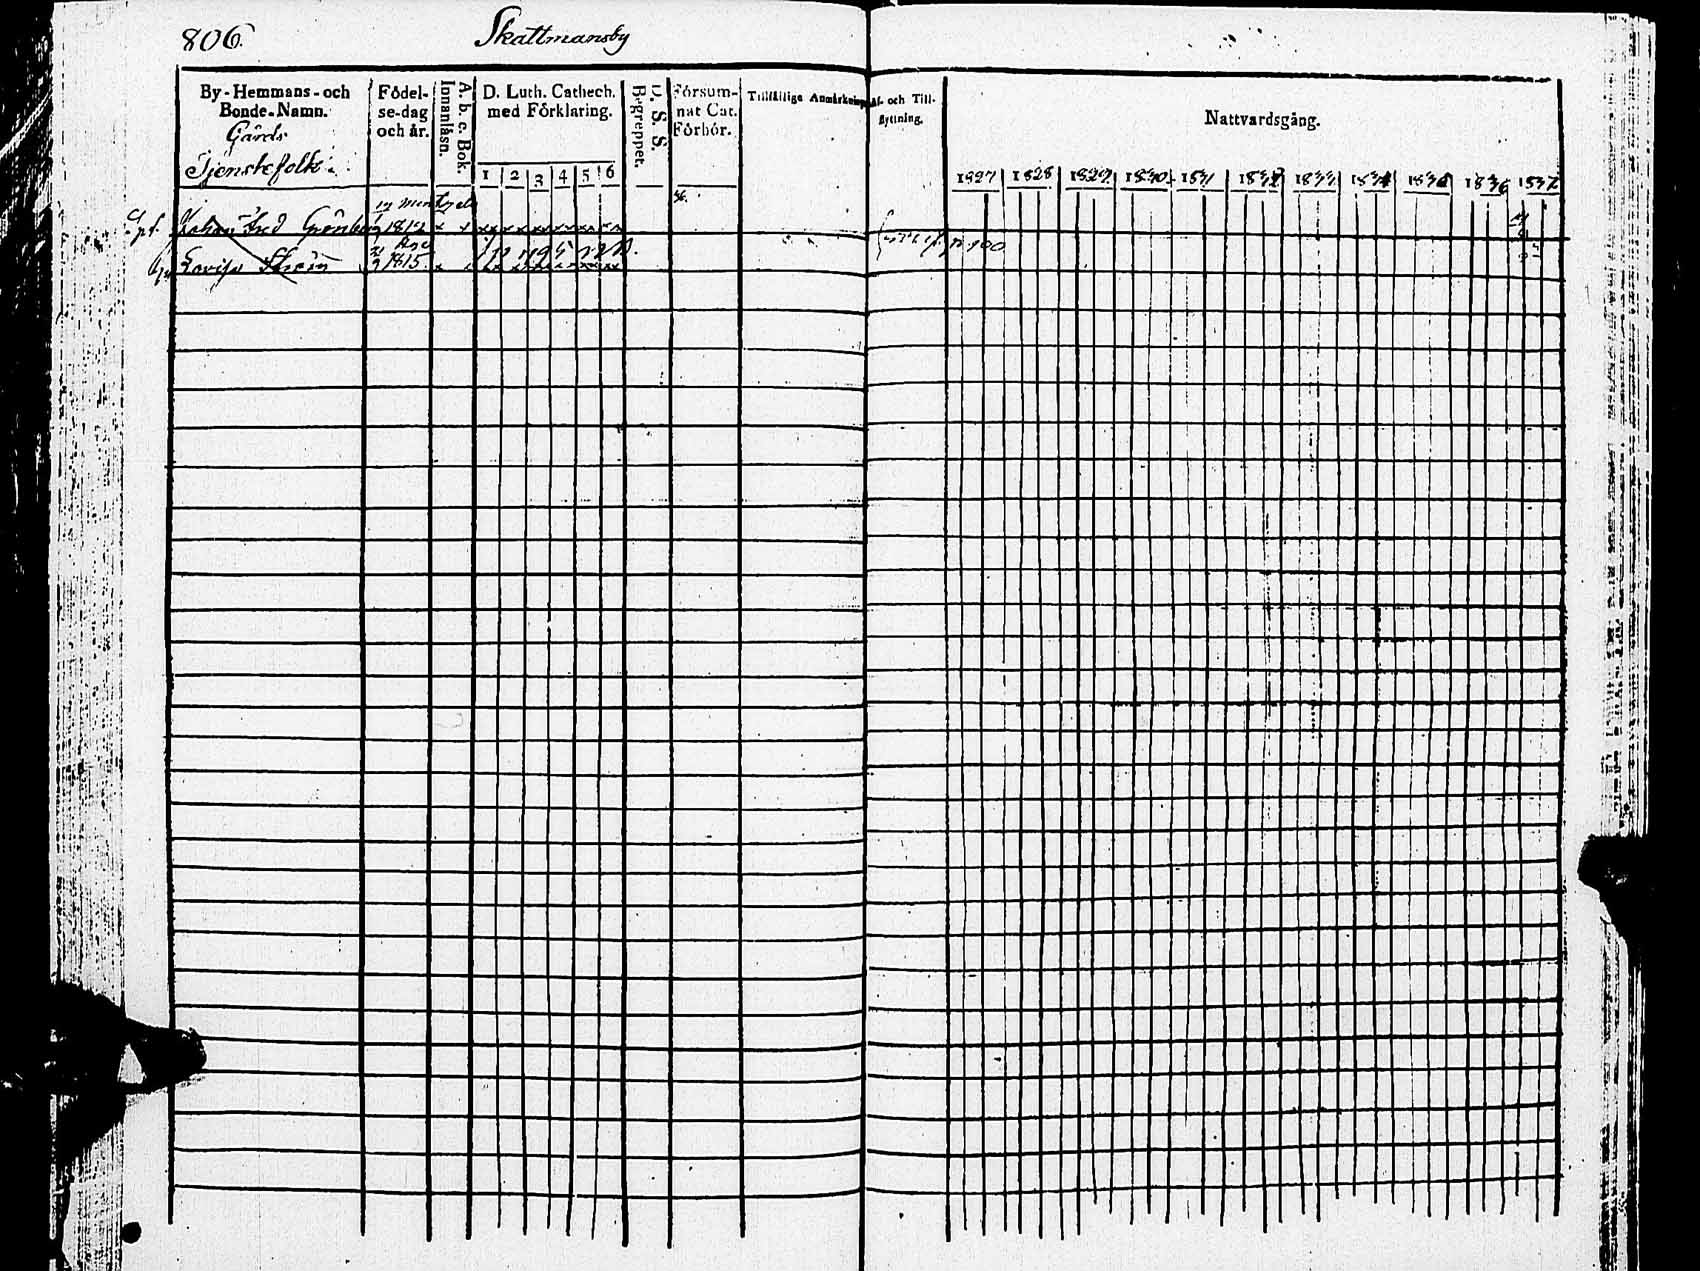 806.
Skattmansby
By-Hemmans-och
Bonde-Namn.
Gårds
Tjenstefolk
Födel-
se-dag
och år.
A. b. c. Bok.
Innanläsn.
D. Luth. Cathech.
med Förklaring.
1 2 3 4 5 6
D. S. S.
Begreppet.
Försum-
nat Cat.
Förhör.
Tillfällige Anmärkning
Af- och Till-
flyttning.
Nattvardsgång.
1827 1828 1829 1830 1831 1832 1833 1834 1835 1836 1837
Johan Fred Grönberg 1812
Lovisa Ström 1815
p 100